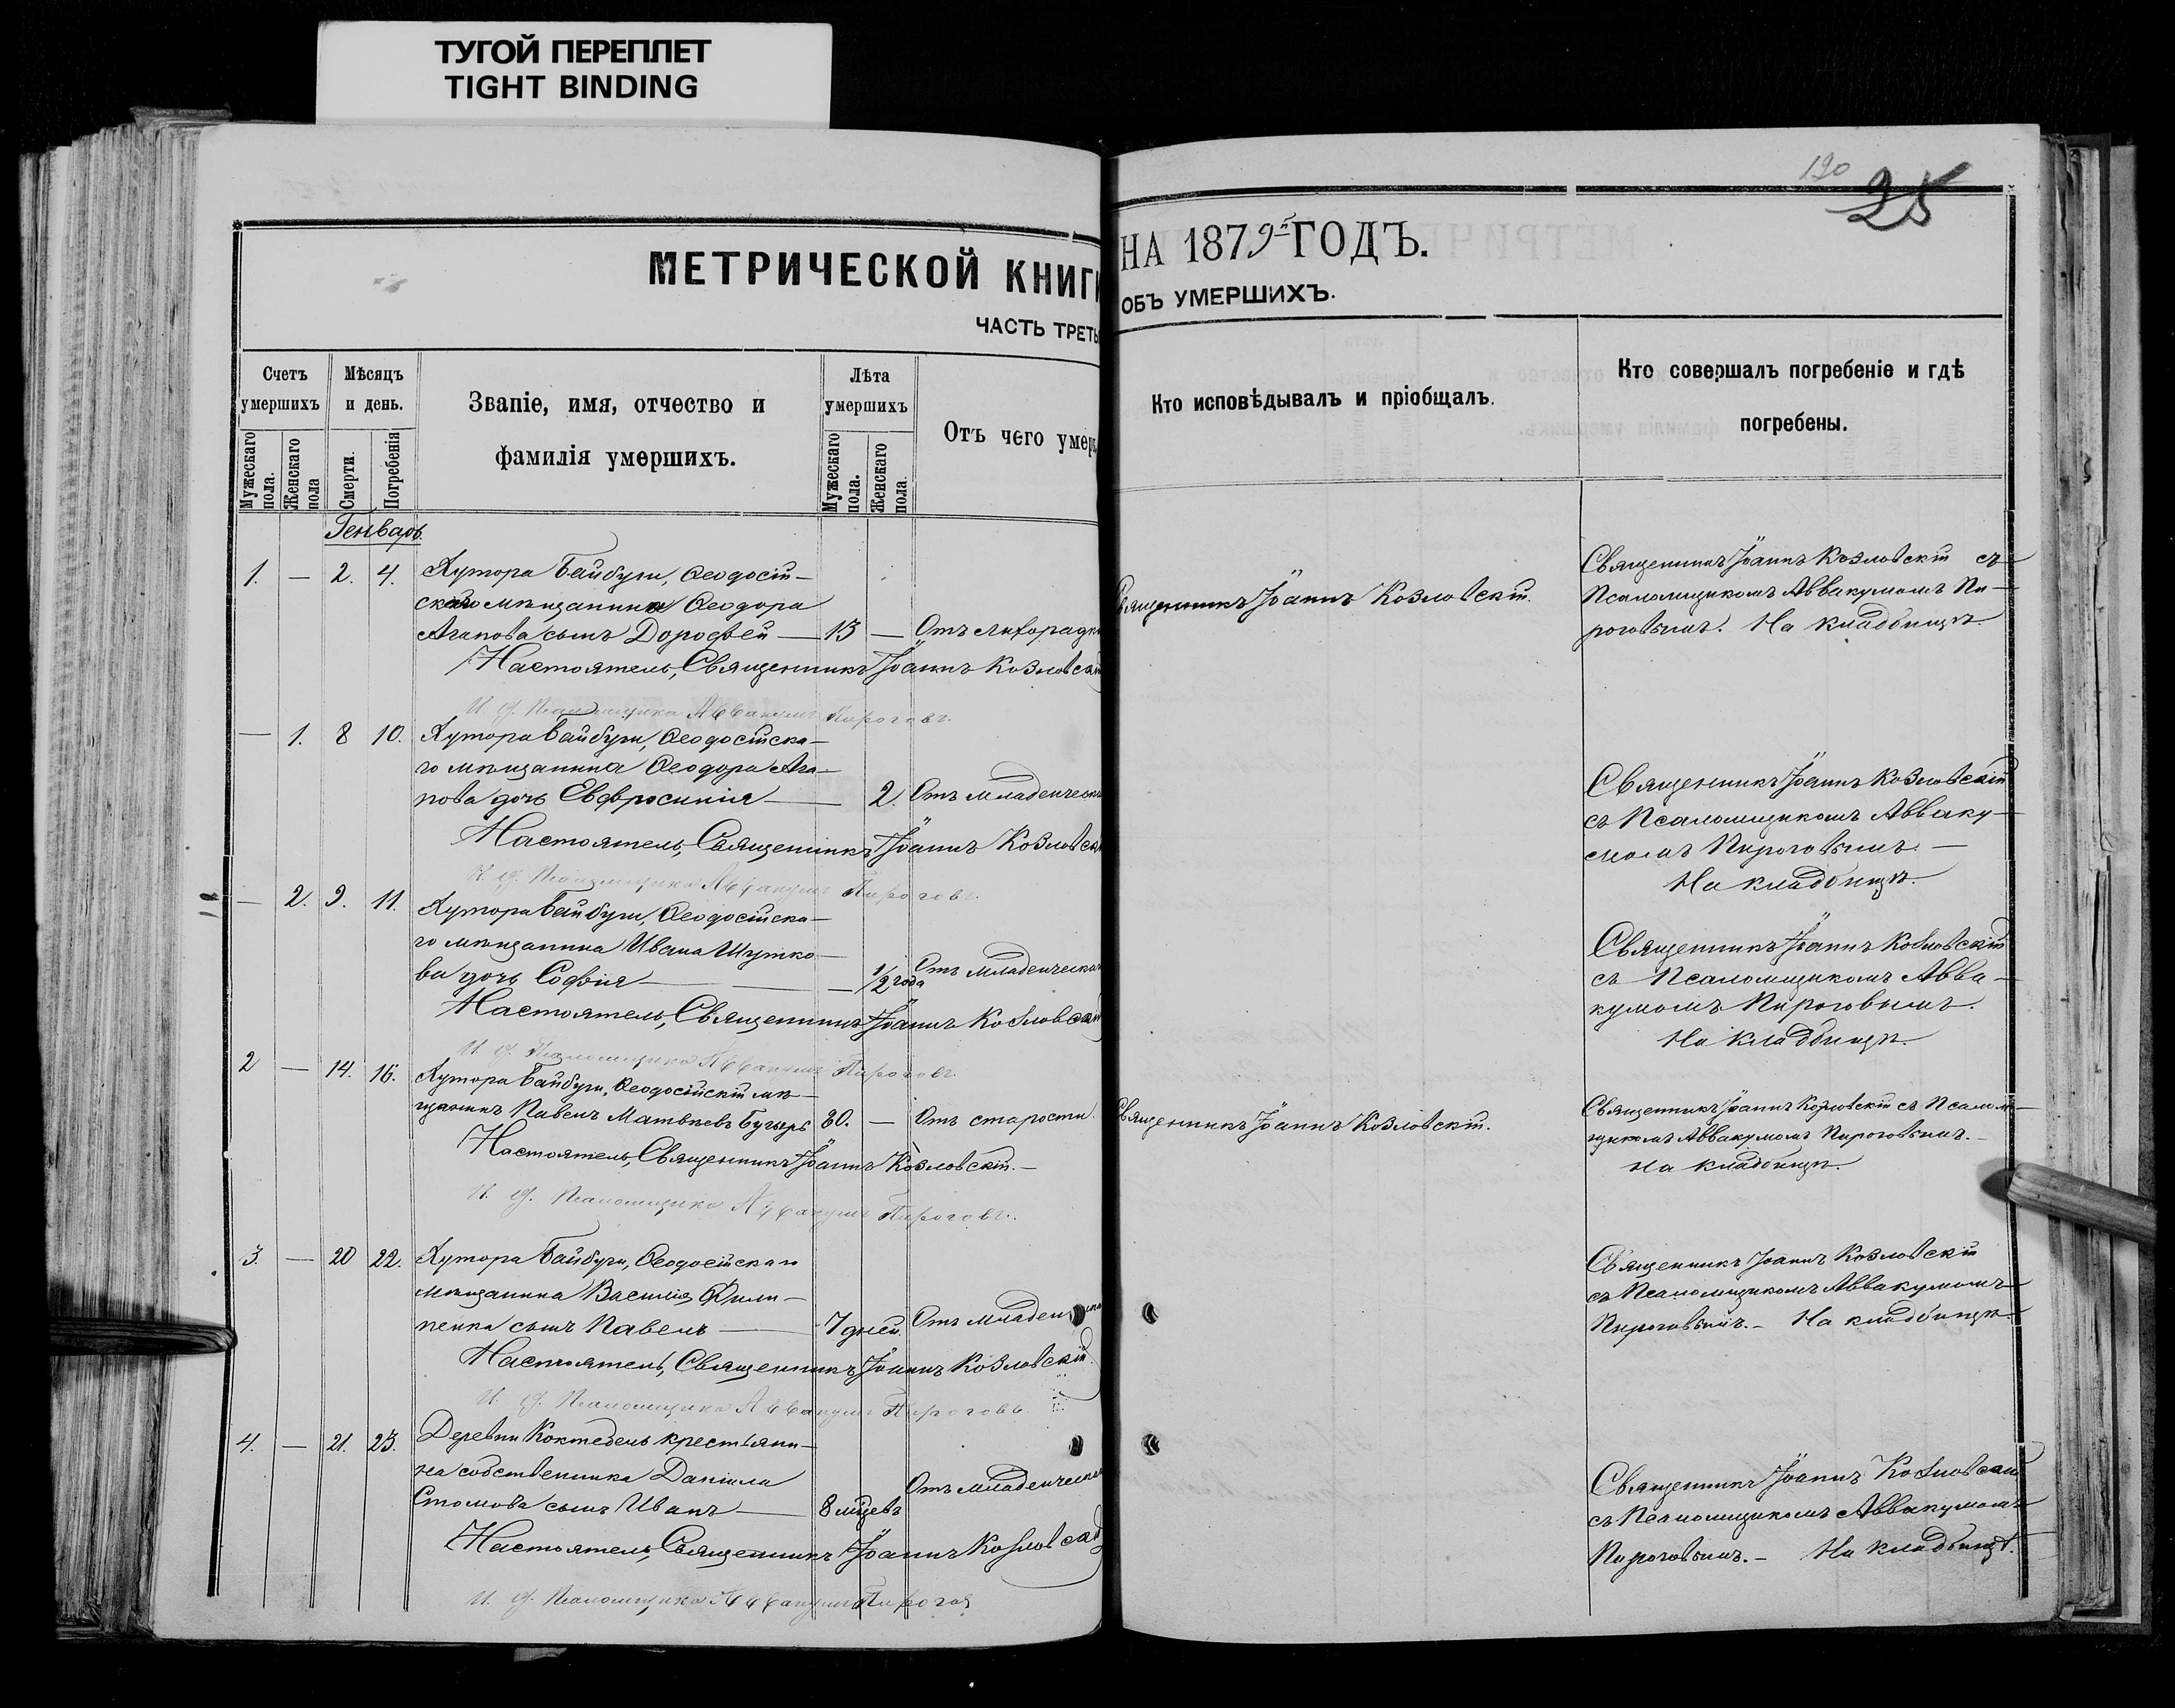 ТУГОЙ ПЕРЕПЛЕТ
TIGHT BINDING
190
25
МЕТРИЧЕСКОЙ КНИГИ
ЧАСТЬ ТРЕТЬ
НА 1879й ГОДЪ.
ОБЪ УМЕРШИХЪ.
Счетъ умершихъ
Мужескаго пола.
Женскаго пола
Мѣсяцъ и день.
Смерти.
Погребенія
Званіе, имя, отчество и
фамилія умершихъ.
Лѣта умершихъ
Мужескаго пола.
Женскаго пола.
Отъ чего умер
Кто исповѣдывалъ и пріобщалъ.
Кто совершалъ погребеніе и гдѣ
погребены.
Генварь.
1. — 2. 4. Хутора Байбуги, Ѳеодосій-
скаго мѣщанина Ѳеодора
Агапова сынъ Дороѳей — 13 — Отъ лихорадки
Священникъ Іоаннъ Козловскій.
Священникъ Іоаннъ Козловскій съ
Псаломщикомъ Аввакумомъ Пи-
роговымъ. На кладбищѣ.
Настоятель, Священникъ Іоаннъ Козловскій
И. д. Псаломщика Аввакумъ Пироговъ.
— 1. 8 10. Хутора Байбуги, Ѳеодосійска-
го мѣщанина Ѳеодора Ага-
пова дочь Евфросинія — 2. Отъ младенческ
Священникъ Іоаннъ Козловскій
съ Псаломщикомъ Авваку-
момъ Пироговымъ. —
На кладбищѣ.
Настоятель, Священникъ Іоаннъ Козловск
И. д. Псаломщика Аввакумъ Пироговъ.
— 2. 9. 11. Хутора Байбуги, Ѳеодосійска-
го мѣщанина Ивана Шутко-
ва дочь Софія — — 1/2 года Отъ младенческой
Священникъ Іоаннъ Козловскій
съ Псаломщикомъ Авва-
кумомъ Пироговымъ.
На кладбищѣ.
Настоятель, Священникъ Іоаннъ Козловскій
И. д. Псаломщика Аввакумъ Пироговъ.
2 — 14. 16. Хутора Байбуги, Ѳеодосійскій мѣ-
щанинъ Павелъ Матвѣевъ Бугырь 80. — Отъ старости.
Священникъ Іоаннъ Козловскій.
Священникъ Іоаннъ Козловскій съ Псалом-
щикомъ Аввакумомъ Пироговымъ. —
На кладбищѣ.
Настоятель, Священникъ Іоаннъ Козловскій. —
И. д. Псаломщика Аввакумъ Пироговъ.
3. — 20 22. Хутора Байбуги, Ѳеодосійскаго
мѣщанина Василія Фили-
пенка сынъ Павелъ — 7 дней. Отъ младен
Священникъ Іоаннъ Козловскій
съ Псаломщикомъ Аввакумомъ
Пироговымъ. — На кладбищѣ.
Настоятель, Священникъ Іоаннъ Козловскій.
И. д. Псаломщика Аввакумъ Пироговъ.
4. — 21. 23. Деревни Коктебель крестьяни-
на собственника Даніила
Стомова сынъ Иванъ — 8 мѣцевъ Отъ младенческой
Священникъ Іоаннъ Козловскій
съ Псаломщикомъ Аввакумомъ
Пироговымъ. — На кладбищѣ.
Настоятель, Священникъ Іоаннъ Козловскій
И. д. Псаломщика Аввакумъ Пирогов